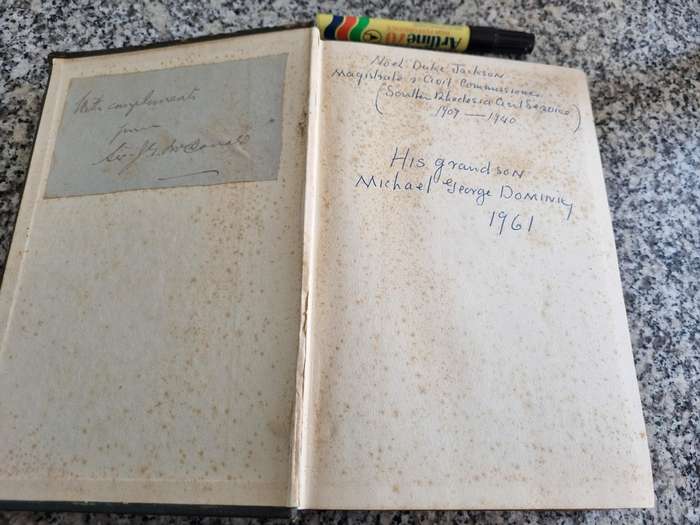 Artline 70
With compliments
from
Sir J. G. McDonald
Noel Duke Jackson
Magistrate & Civil Commissioner
(Southern Rhodesia Civil Service)
1909 — 1940
His grandson
Michael George Dominic
1961